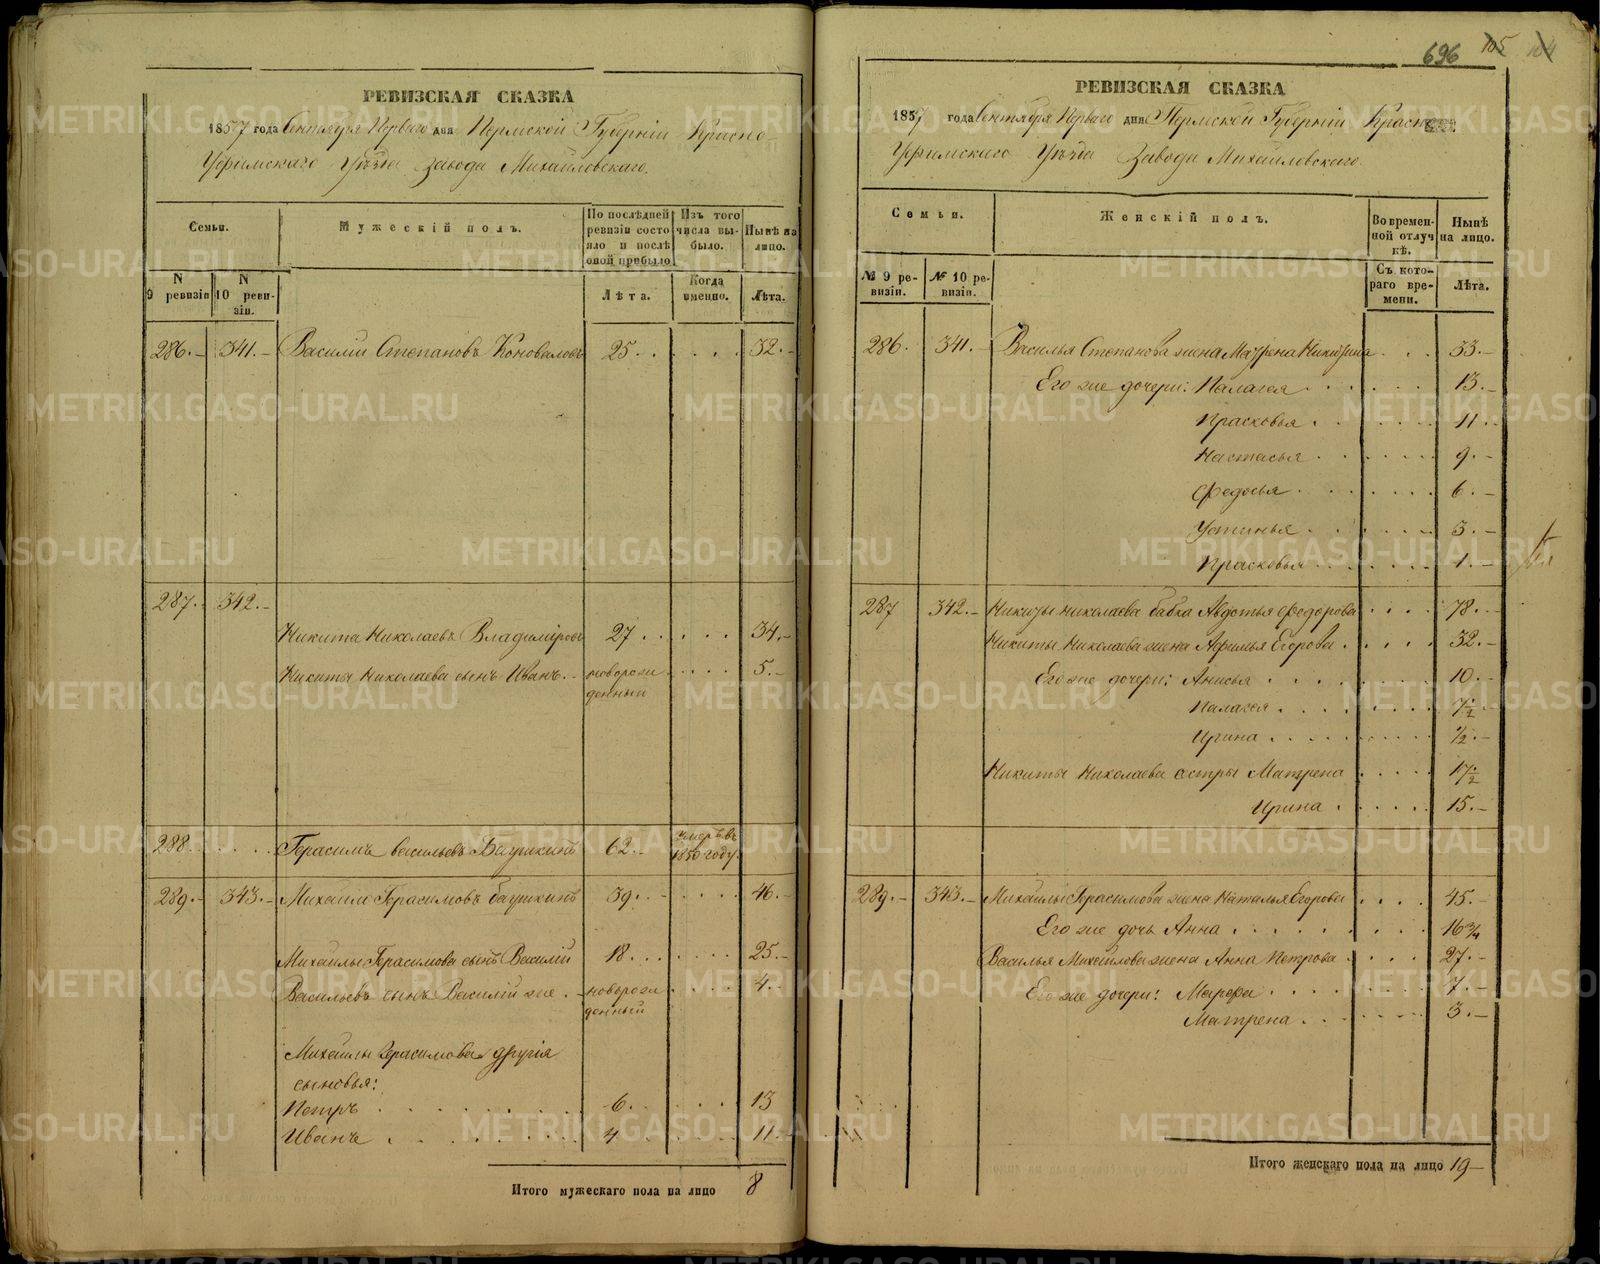 РЕВИЗСКАЯ СКАЗКА
1857 года Сентября Перваго дня Пермской Губерніи Красно
Уфимскаго Уѣзда Завода Михайловскаго.
Семьи.
Мужескій полъ.
По послѣдней ревизіи состояло и послѣ оной прибыло.
Изъ того числа выбыло.
Нынѣ на лицо.
N 9 ревизіи
N 10 ревизіи.
Лѣта.
Когда именно.
Лѣта.
286.– 341.– Василій Степановъ Коноваловъ 25 . . . . . . 32.–
287.– 342.–
Никита Николаевъ Владиміровъ 27 . . . . . . 34.–
Никиты Николаева сынъ Иванъ . – новорожденный . . . . 5.–
288. . . . . Герасимъ Васильевъ Баушкинъ 62.– умеръ въ 1850 году.
289.– 343.– Михайло Герасимовъ Баушкинъ 39. . . . . . 46.–
Михайлы Герасимова сынъ Василій 18. . . . . . 25.–
Васильевъ сынъ Василій же . – новорожденный . . . . 4.–
Михайлы Герасимова другія
сыновья:
Петръ . . . . . . . . 6. . . . . . 13
Иванъ . . . . . . . . 4 . . . . . 11.
Итого мужескаго пола на лицо 8
696 105 104
РЕВИЗСКАЯ СКАЗКА
1857 года Сентября Перваго дня Пермской Губерніи Красно
Уфимскаго Уѣзда Завода Михайловскаго.
Семьи.
Женскій полъ.
Во временной отлучкѣ.
Нынѣ на лицо.
№ 9 ревизіи.
№ 10 ревизіи.
Съ котораго времени.
Лѣта.
286. 341.– Василья Степанова жена Матрена Никитина . . . 33.–
Его же дочери: Палагея . . . . . . 13.–
Прасковья . . . . . . 11. .
Настасья . . . . . . 9.–
Федосья . . . . . . 6.–
Устинья . . . . . . 3.–
Прасковья . . . . . . 1.–
287 342.– Никиты Николаева бабка Авдотья Федорова . . . . 78.–
Никиты Николаева жена Афимья Егорова . . . . . 32.–
Его же дочери: Анисья . . . . . . 10.–
Палагея . . . . . . 7 1/2
Ирина . . . . . . 1/2.–
Никиты Николаева сестры Матрена . . . . . 17 1/2
Ирина . . . . . . 15.–
289.– 343.– Михайлы Герасимова жена Наталья Егорова . . . . 45.–
Его же дочь Анна . . . . . . 16 3/4
Василья Михайлова жена Анна Петрова . . . . 27.–
Его же дочери: Марфа . . . . . . 7.–
Матрена . . . . . . 3.–
Итого женскаго пола на лицо 19–
METRIKI.GASO-URAL.RU